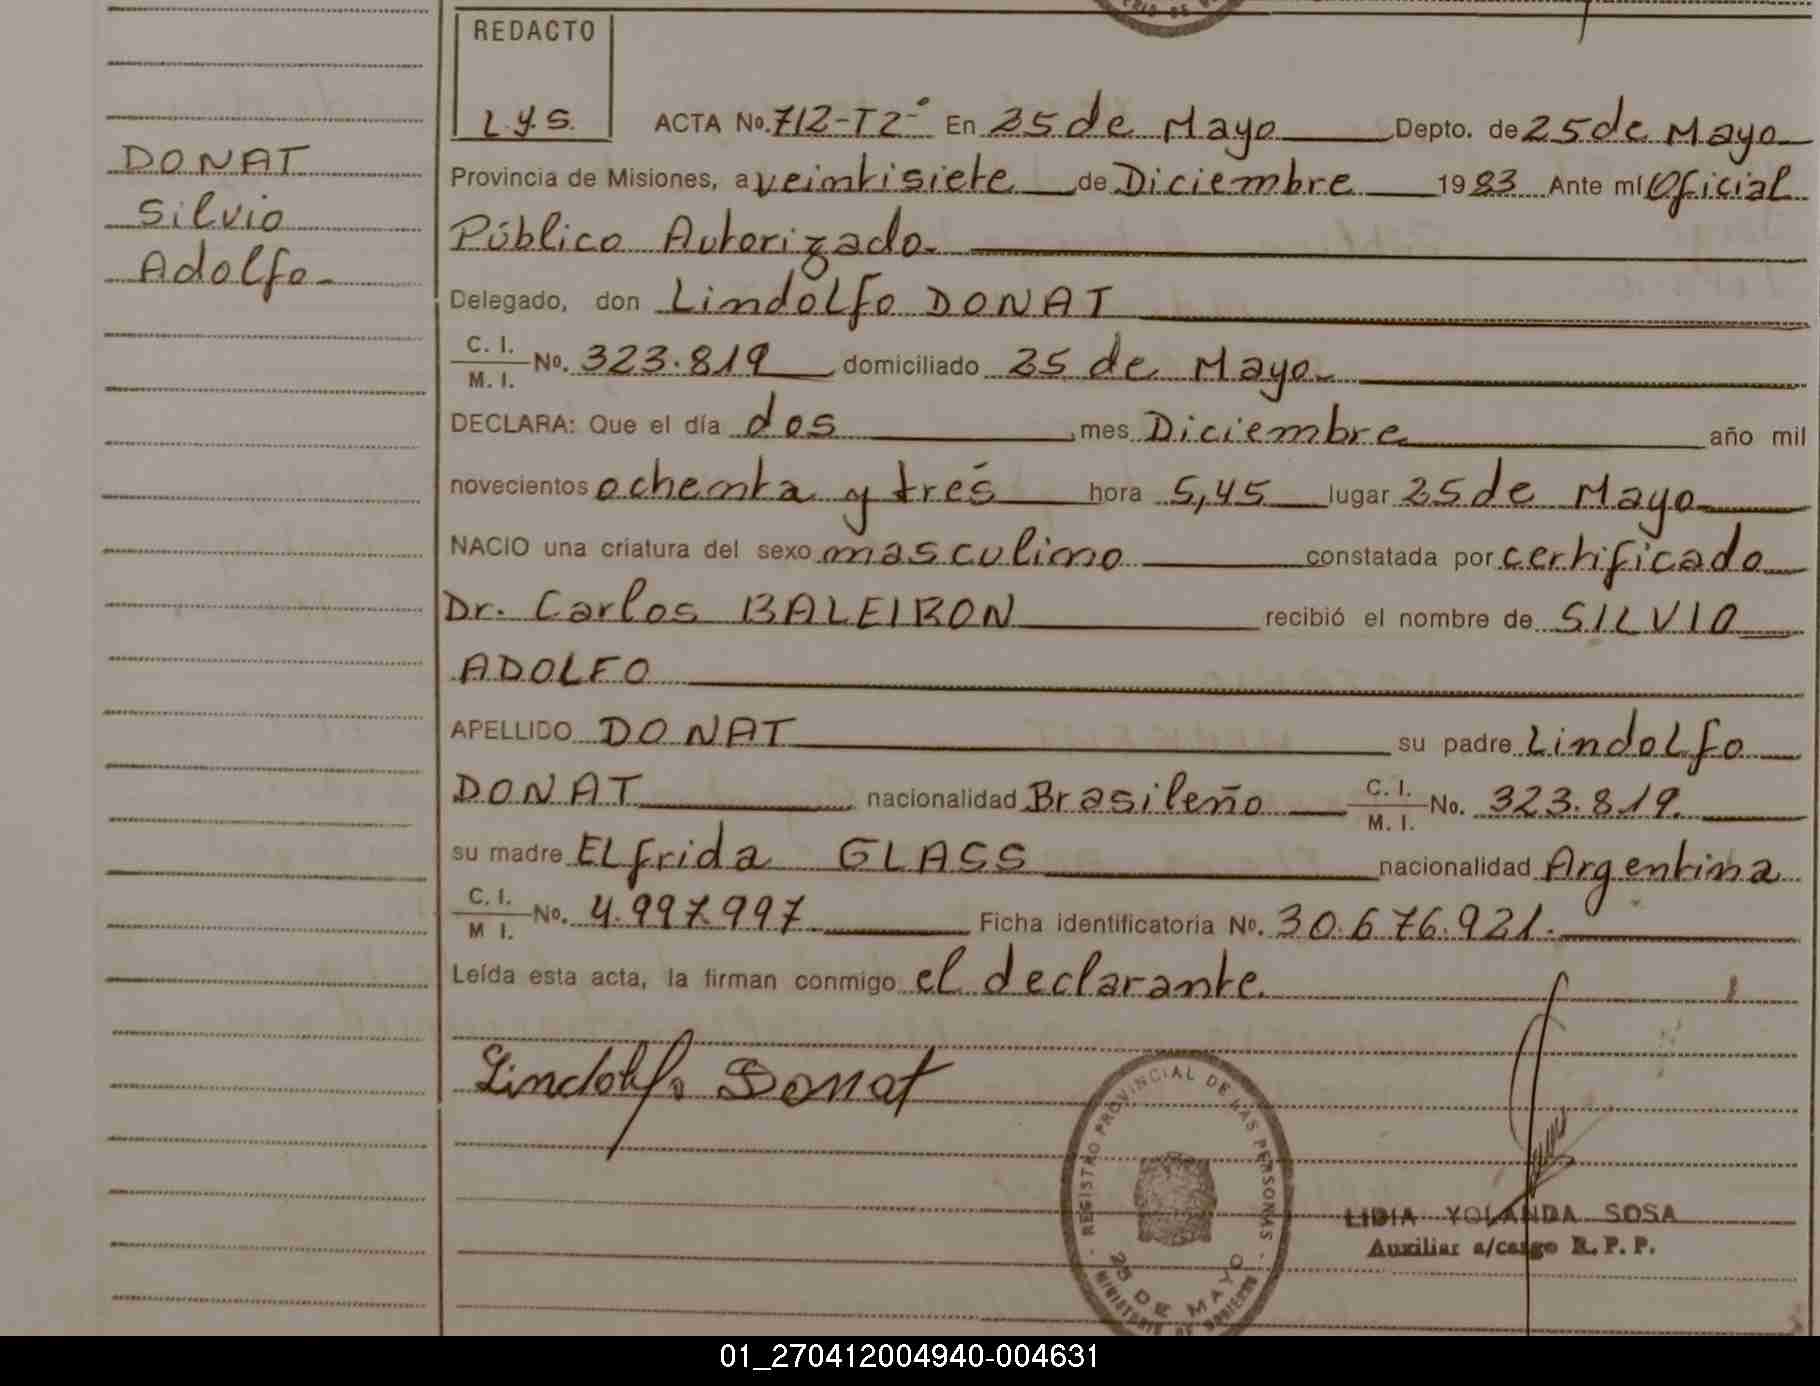 REDACTO
L.y.S.
DONAT
Silvio
Adolfo-
ACTA No. 712-T2º En 25 de Mayo Depto. de 25 de Mayo
Provincia de Misiones, a veintisiete de Diciembre 1983 Ante mí Oficial
Público Autorizado.
Delegado, don Lindolfo DONAT
C. I.
M. I. No. 323.819 domiciliado 25 de Mayo-
DECLARA: Que el día dos mes Diciembre año mil
novecientos ochenta y trés hora 5,45 lugar 25 de Mayo
NACIO una criatura del sexo masculino constatada por certificado
Dr. Carlos BALEIRON recibió el nombre de SILVIO
ADOLFO
APELLIDO DONAT su padre Lindolfo
DONAT nacionalidad Brasileño C. I. M. I. No. 323.819.
su madre ELfrida GLASS nacionalidad Argentina
C. I.
M I. No. 4.997.997 Ficha identificatoria No. 30.676.921.
Leída esta acta, la firman conmigo el declarante.
Lindolfo Donat
REGISTRO PROVINCIAL DE LAS PERSONAS
25 DE MAYO
MINISTERIO DE GOBIERNO
LIDIA YOLANDA SOSA
Auxiliar a/cargo R. P. P.
01_270412004940-004631